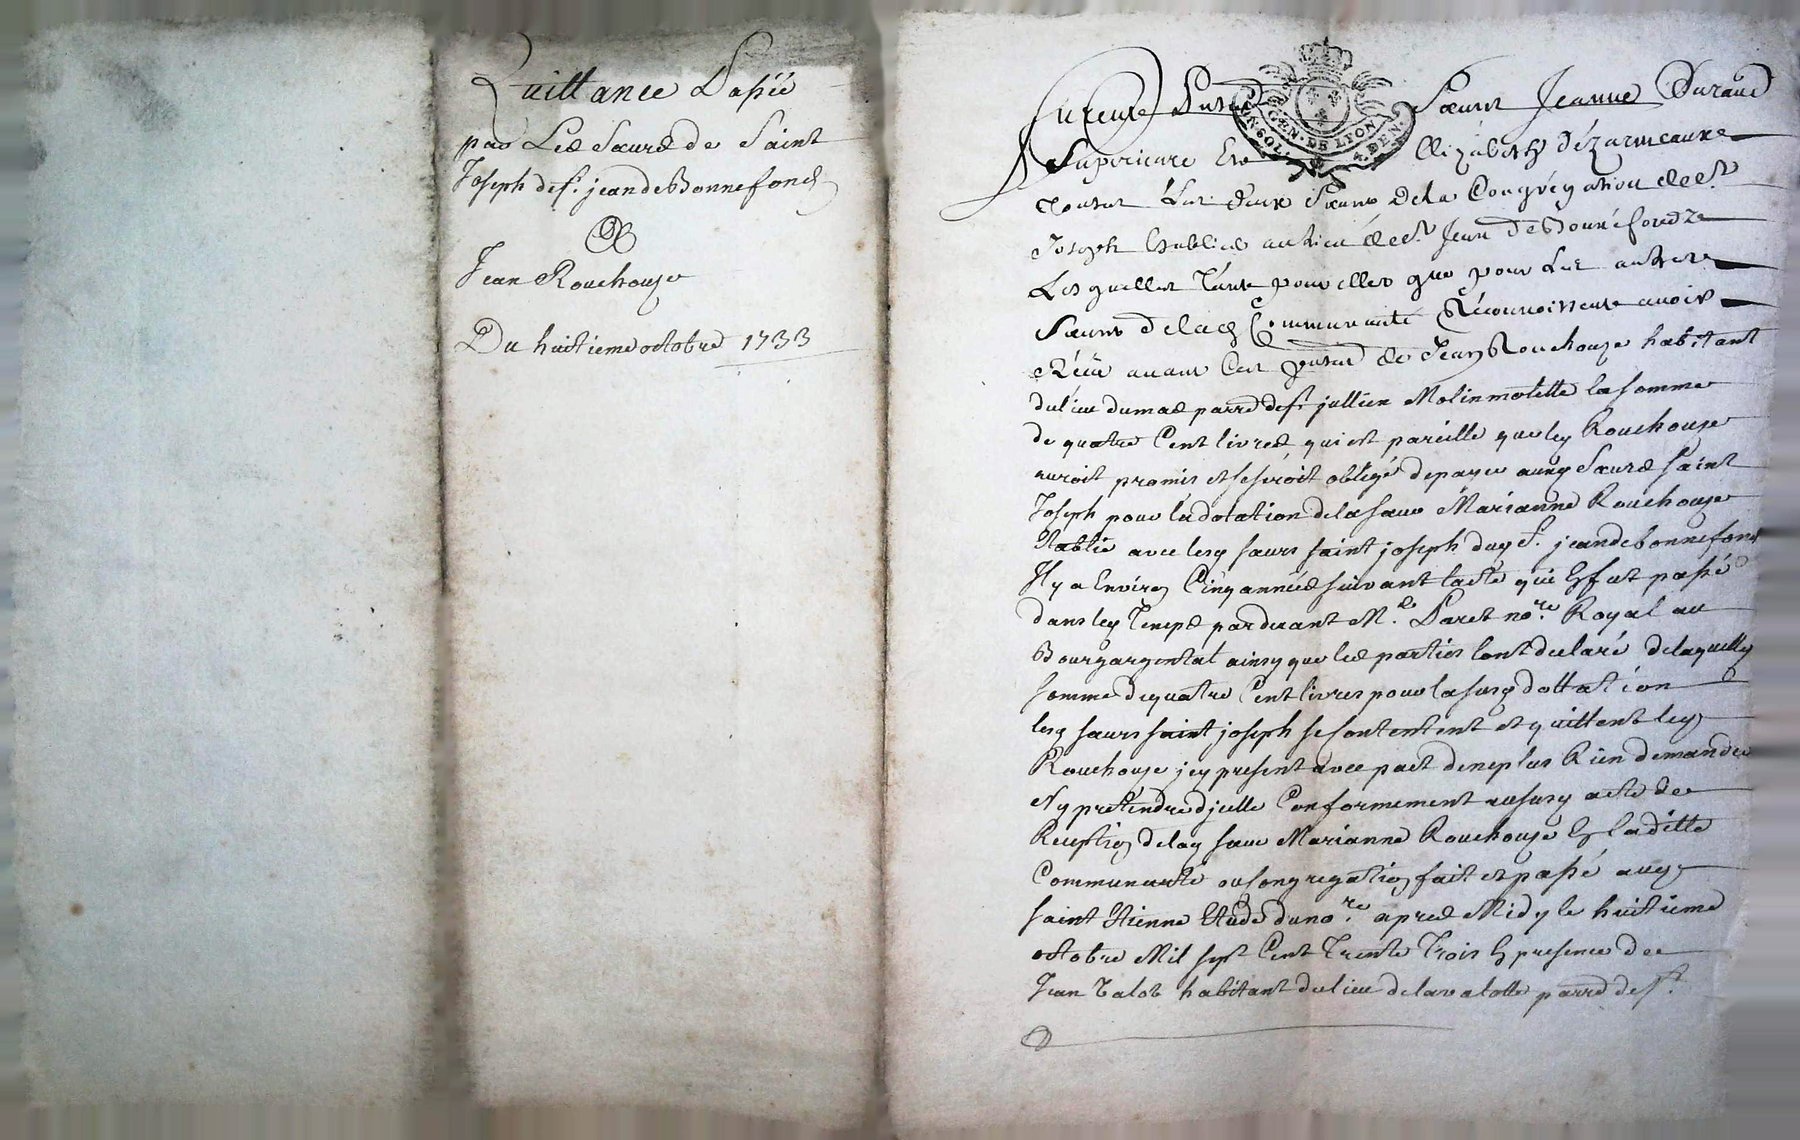 Quittance Passée
par Les Sœurs de Saint
Joseph de St. jean de Bonnefond
Jean Rouchouze
Du huitieme octobre 1733
GEN. DE LYON
Furent Sœurs Jeanne Durand
Superieure Elizabeth Dézarmeaux
toutes deux Sœurs de la Congrégation de St.
Joseph Establies au lieu de St. Jean de Bonnéfondz
Lesquelles tant pour elles que pour Les autres
Sœurs de lad Communauté Réconnoissent avoir
Réçû avant Cet de Jean Rouchouze habitant
du lieu du mas parre de St. jullien Molinmolette la somme
de quatre Cent livres, qui est pareille que led Rouchouze
auroit promis et se seroit obligé de payer auxd Sœurs saint
Joseph pour la dotation de la sœur Marianne Rouchouze
Etablie avec lesd sœurs saint joseph dud St. jean de bonnefond
Il y a Environ Cinq années suivant l'acte qui En fut passé
dans led temps par devant Me. Paret nore. Royal au
Bourgargental ainsy que les parties l'ont declaré de laquelle
somme de quatre Cent livres pour la susd dottation
lesd sœurs saint joseph se Contentent et quittent led
Rouchouze jcy present avec pact de ne plus Rien demander
Ny prétendre d'jcelle Conformement au susd acte de
Reception de lad sœur Marianne Rouchouze En laditte
Communauté ou Congregation, fait et passé aud
saint Etienne Etude du nore. apres Midy le huitieme
octobre Mil sept Cent Trente Trois En presence de
Jean Talob habitant du lieu de la valotte parre de St.